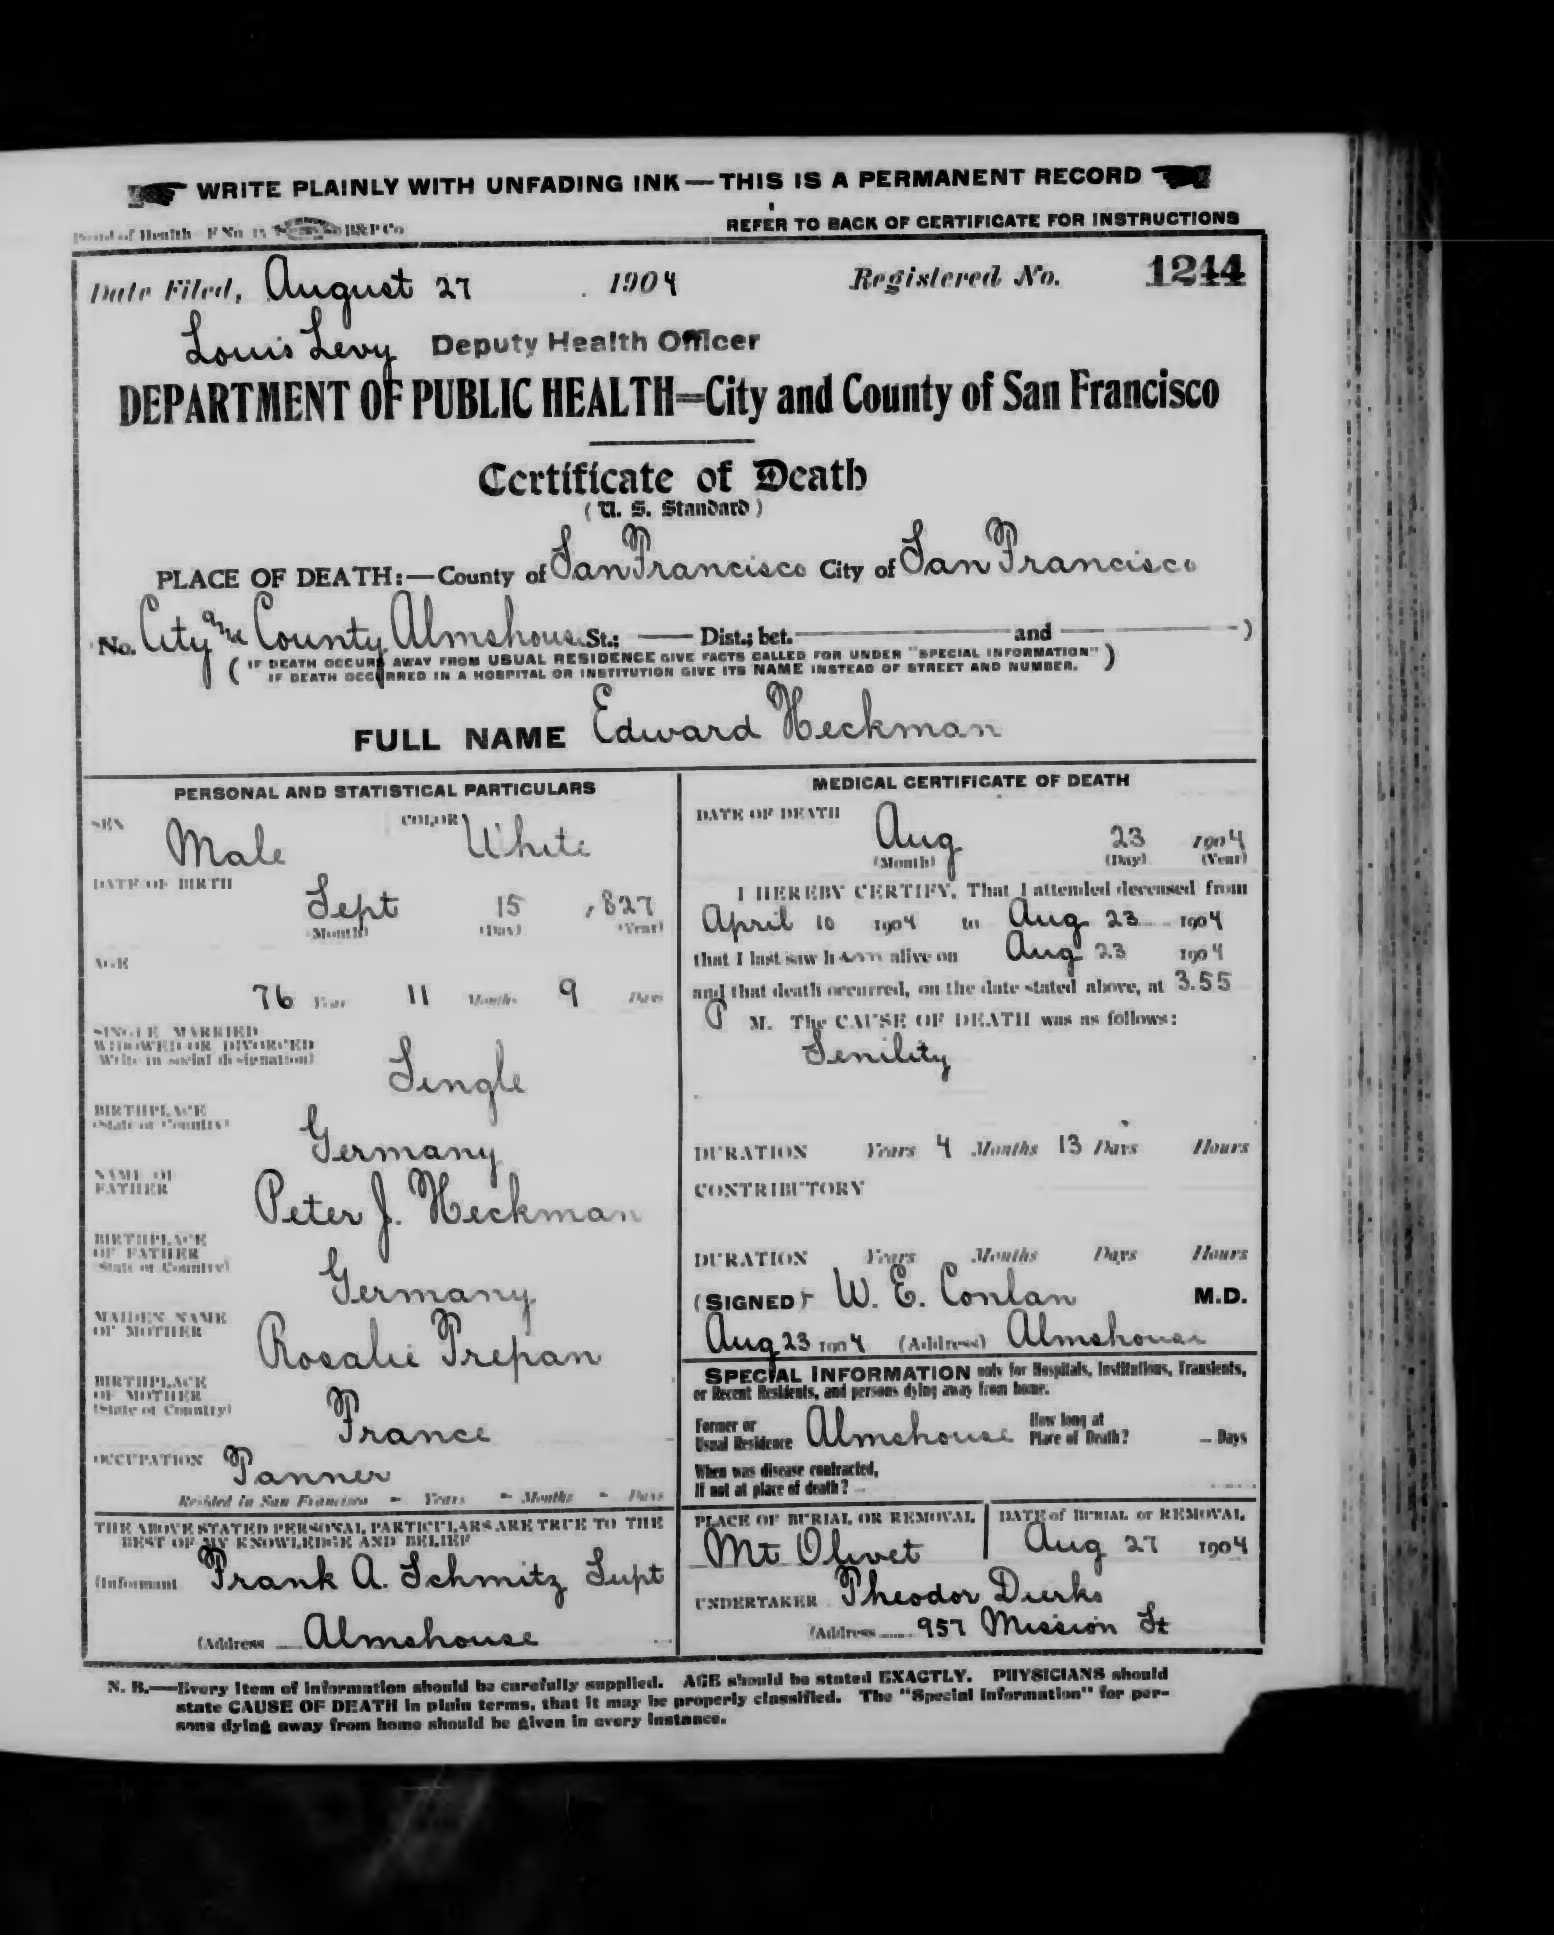 WRITE PLAINLY WITH UNFADING INK—THIS IS A PERMANENT RECORD
Board of Health F No. 15 B&P Co
REFER TO BACK OF CERTIFICATE FOR INSTRUCTIONS
Date Filed, August 27 1904 Registered No. 1244
Louis Levy Deputy Health Officer
DEPARTMENT OF PUBLIC HEALTH=City and County of San Francisco
Certificate of Death
(U. S. Standard)
PLACE OF DEATH:—County of San Francisco City of San Francisco
No. City and County Almshouse St.; — Dist.; bet. — and — )
( IF DEATH OCCURS AWAY FROM USUAL RESIDENCE GIVE FACTS CALLED FOR UNDER "SPECIAL INFORMATION" )
IF DEATH OCCURRED IN A HOSPITAL OR INSTITUTION GIVE ITS NAME INSTEAD OF STREET AND NUMBER.
FULL NAME Edward Heckman
PERSONAL AND STATISTICAL PARTICULARS
SEX Male COLOR White
DATE OF BIRTH
Sept 15 1827
(Month) (Day) (Year)
AGE
76 Years 11 Months 9 Days
SINGLE MARRIED
WIDOWED OR DIVORCED
Write in social designation)
Single
BIRTHPLACE
(State or Country)
Germany
NAME OF
FATHER
Peter J. Heckman
BIRTHPLACE
OF FATHER
(State or Country)
Germany
MAIDEN NAME
OF MOTHER
Rosalie Trepan
BIRTHPLACE
OF MOTHER
(State or Country)
France
OCCUPATION Tanner
Resided in San Francisco - Years - Months - Days
THE ABOVE STATED PERSONAL PARTICULARS ARE TRUE TO THE
BEST OF MY KNOWLEDGE AND BELIEF
(Informant Frank A. Schmitz Supt
(Address Almshouse
MEDICAL CERTIFICATE OF DEATH
DATE OF DEATH
Aug 23 1904
(Month) (Day) (Year)
I HEREBY CERTIFY, That I attended deceased from
April 10 1904 to Aug 23 1904
that I last saw him alive on Aug 23 1904
and that death occurred, on the date stated above, at 3.55
P M. The CAUSE OF DEATH was as follows:
Senility
DURATION Years 4 Months 13 Days Hours
CONTRIBUTORY
DURATION Years Months Days Hours
(SIGNED) W. E. Conlan M.D.
Aug 23 1904 (Address) Almshouse
SPECIAL INFORMATION only for Hospitals, Institutions, Transients,
or Recent Residents, and persons dying away from home.
Former or
Usual Residence Almshouse
How long at
Place of Death? — Days
When was disease contracted,
If not at place of death?
PLACE OF BURIAL OR REMOVAL
Mt Olivet
DATE of BURIAL or REMOVAL
Aug 27 1904
UNDERTAKER Theodor Dierks
(Address 957 Mission St
N. B.—Every item of information should be carefully supplied. AGE should be stated EXACTLY. PHYSICIANS should
state CAUSE OF DEATH in plain terms, that it may be properly classified. The "Special Information" for per-
sons dying away from home should be given in every instance.